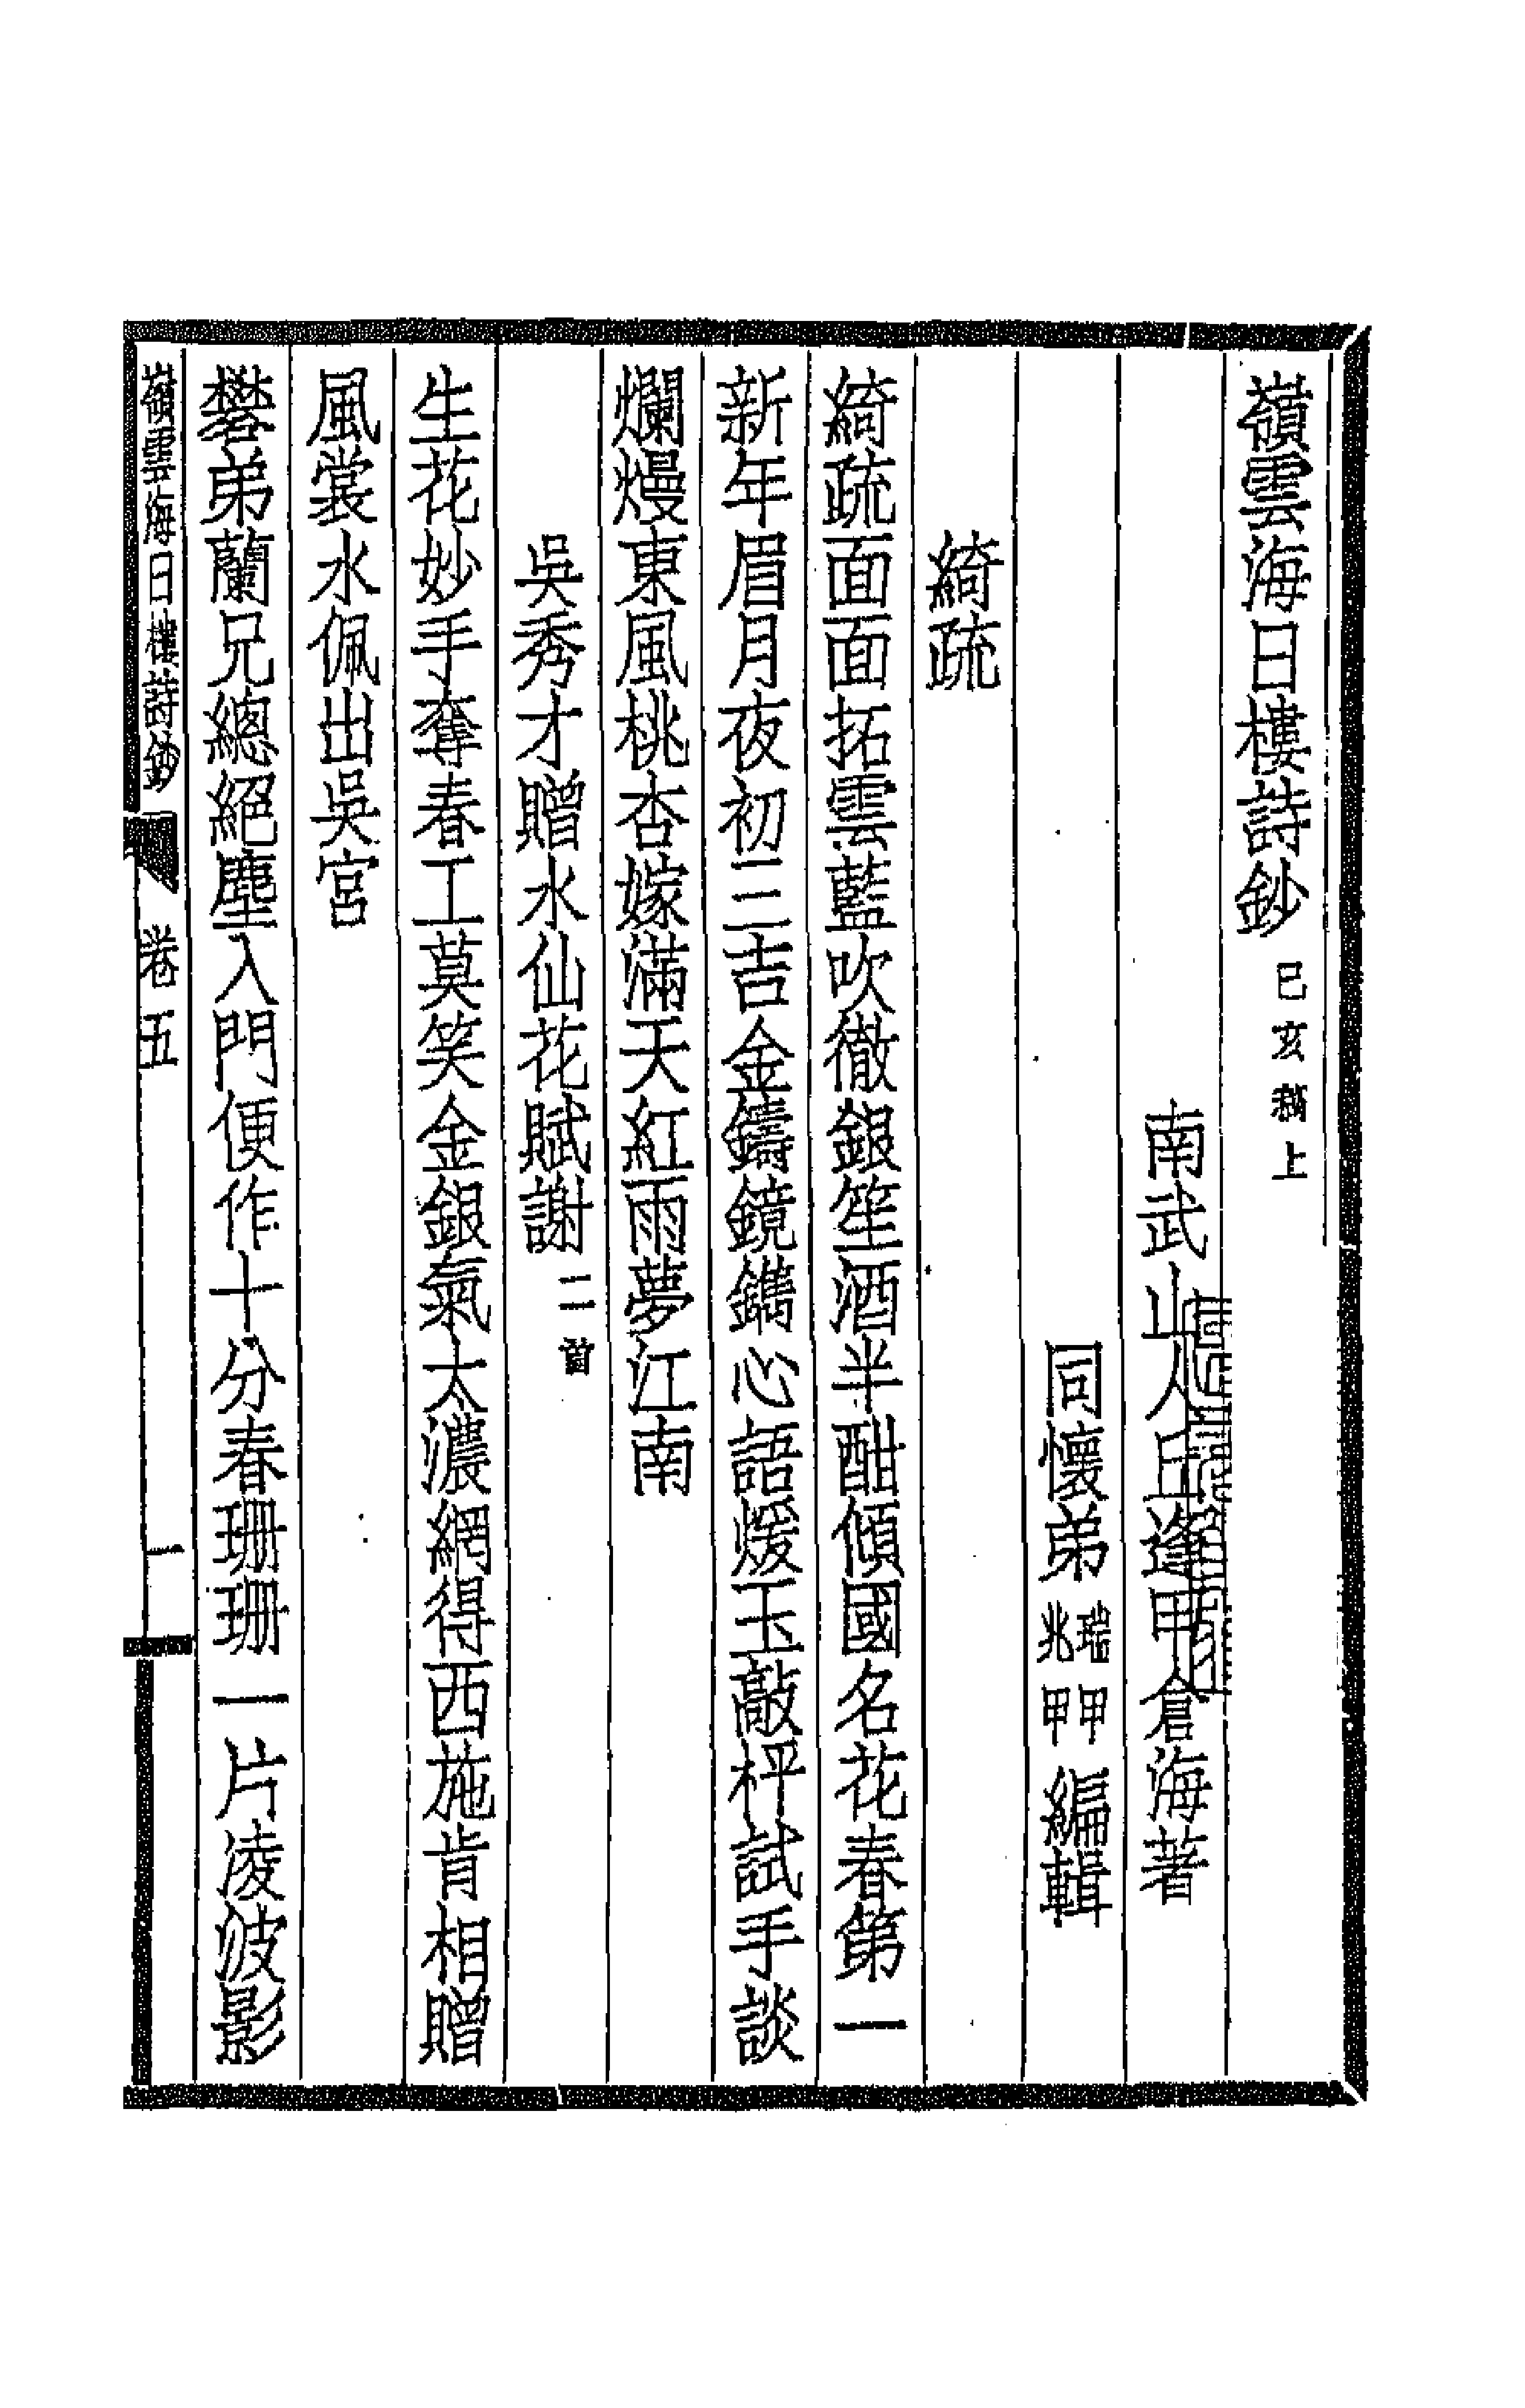 嶺雲海日樓詩鈔 己亥稿上
南武山人丘逢甲倉海著
同懷弟瑞甲兆甲編輯
綺疏
綺疏面面拓雲藍吹徹銀笙酒半酣傾國名花春第一
新年眉月夜初三吉金鑄鏡鐫心語煖玉敲枰試手談
爛熳東風桃杏嫁滿天紅雨夢江南
吳秀才贈水仙花賦謝二首
生花妙手奪春工莫笑金銀氣太濃網得西施肯相贈
風裳水佩出吳宮
礬弟蘭兄總絕塵入門便作十分春珊珊一片凌波影
嶺雲海日樓詩鈔 卷五 一